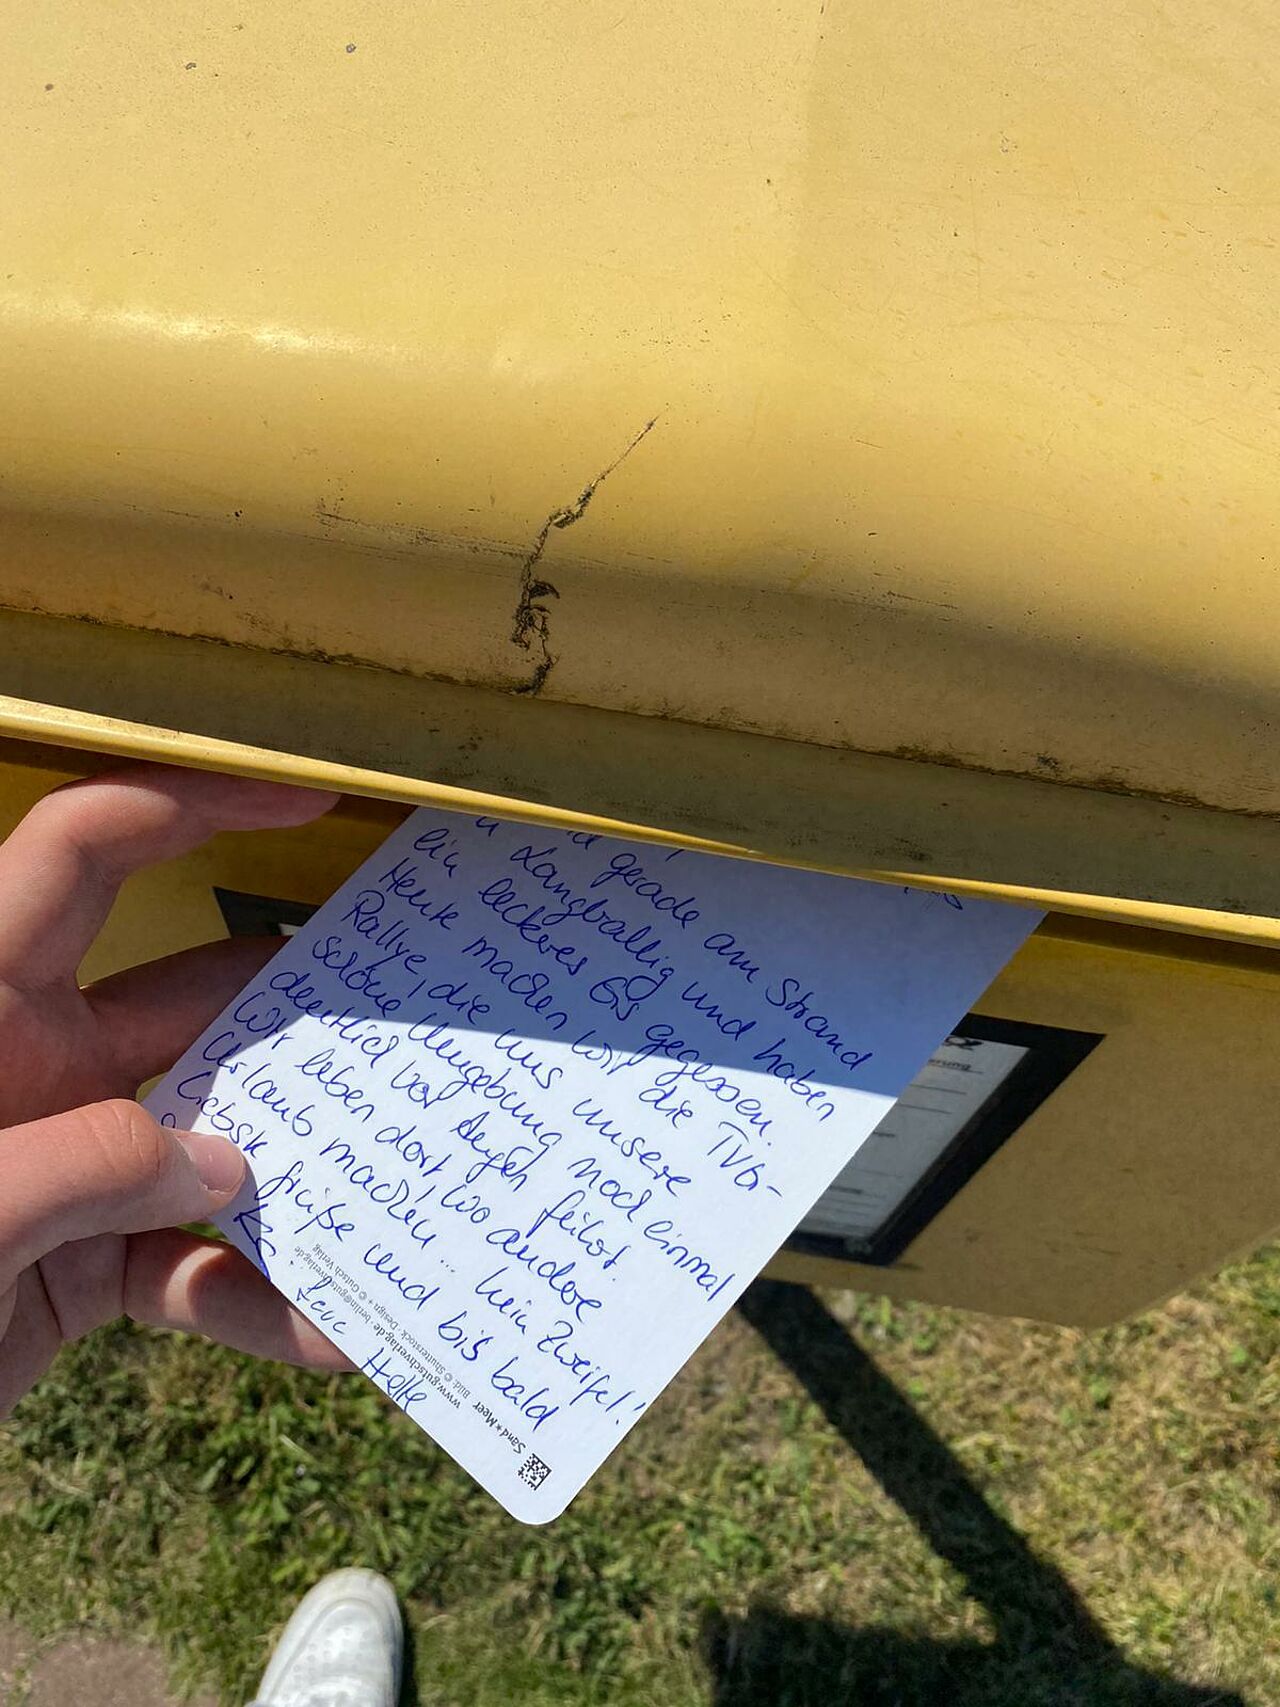 gerade am Strand
Langballig und haben
ein leckeres Eis gegessen.
Heute machen wir die TVG-
Rallye, die uns unsere
schöne Umgebung noch einmal
deutlich vor Augen führt.
Wir leben dort, wo andere
Urlaub machen... kein Zweifel!
Liebste Grüße und bis bald
Helle
Sand★Meer
www.gutschverlag.de · berlin@gutschverlag.de
Bild: © Shutterstock · Design + © Gutsch Verlag